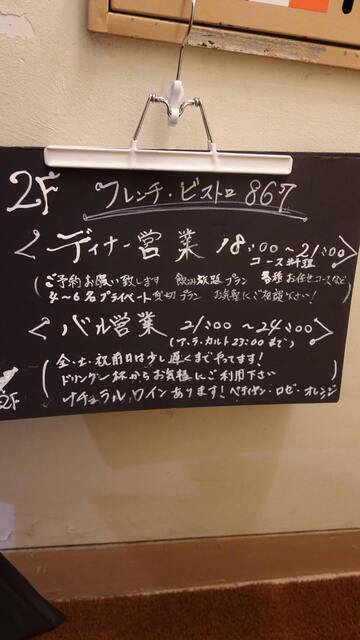 2F フレンチ・ビストロ 867
<ディナー営業 18:00〜21:00>
コース料理
(ご予約お願い致します 飲み放題プラン 各種お任せコースなど
4〜6名プライベート貸切プラン お気軽にご相談下さい!)
<バル営業 21:00〜24:00>
(ア・ラ・カルト 23:00まで)
(金・土・祝前日は少し遅くまでやってます!
ドリンク一杯からお気軽にご利用下さい
ナチュラルワインあります! ペティアン・ロゼ・オレンジ
2F